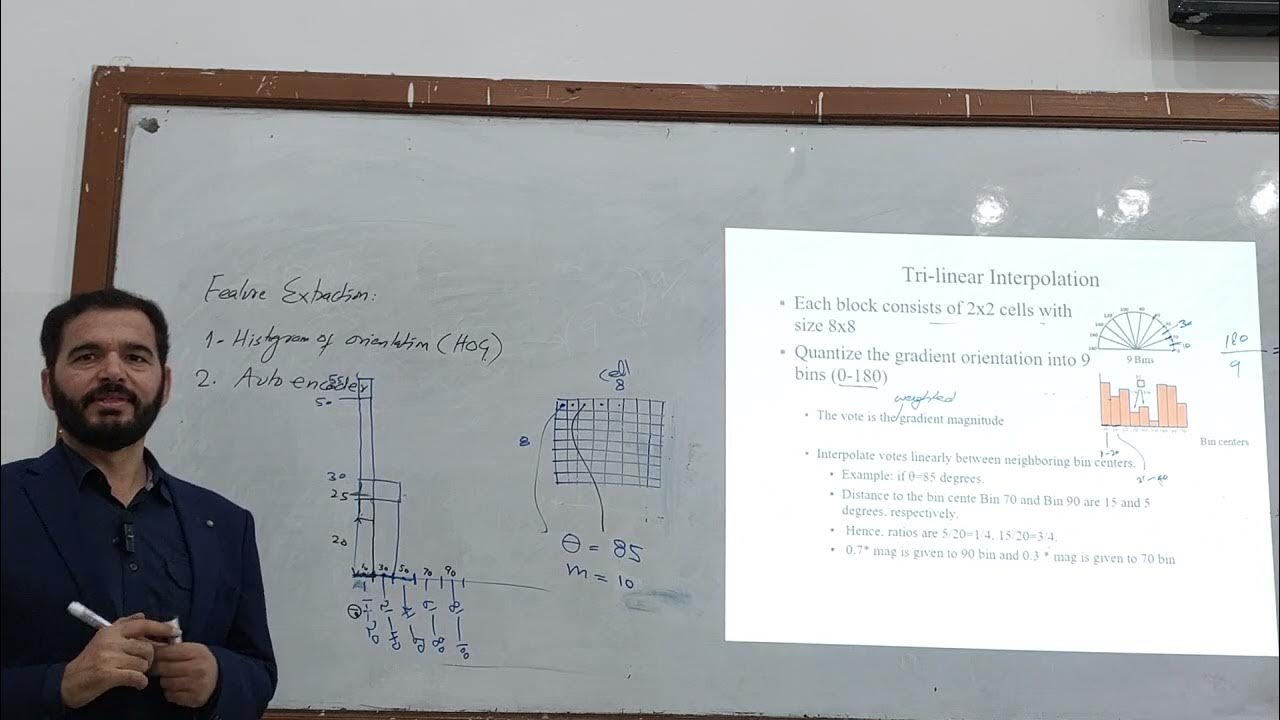 Feature Extraction:
1- Histogram of orientation (HOG)
2. Auto encoder
55
50
30
25
20
10 30 50 70 90
cell
8
8
θ = 85
m = 10
Tri-linear Interpolation
Each block consists of 2x2 cells with
size 8x8
Quantize the gradient orientation into 9
bins (0-180)
weighted
The vote is the gradient magnitude
Interpolate votes linearly between neighboring bin centers.
Example: if θ=85 degrees.
Distance to the bin cente Bin 70 and Bin 90 are 15 and 5
degrees, respectively.
Hence, ratios are 5/20=1/4, 15/20=3/4.
0.7* mag is given to 90 bin and 0.3 * mag is given to 70 bin
9 Bins
Bin centers
180
9
=